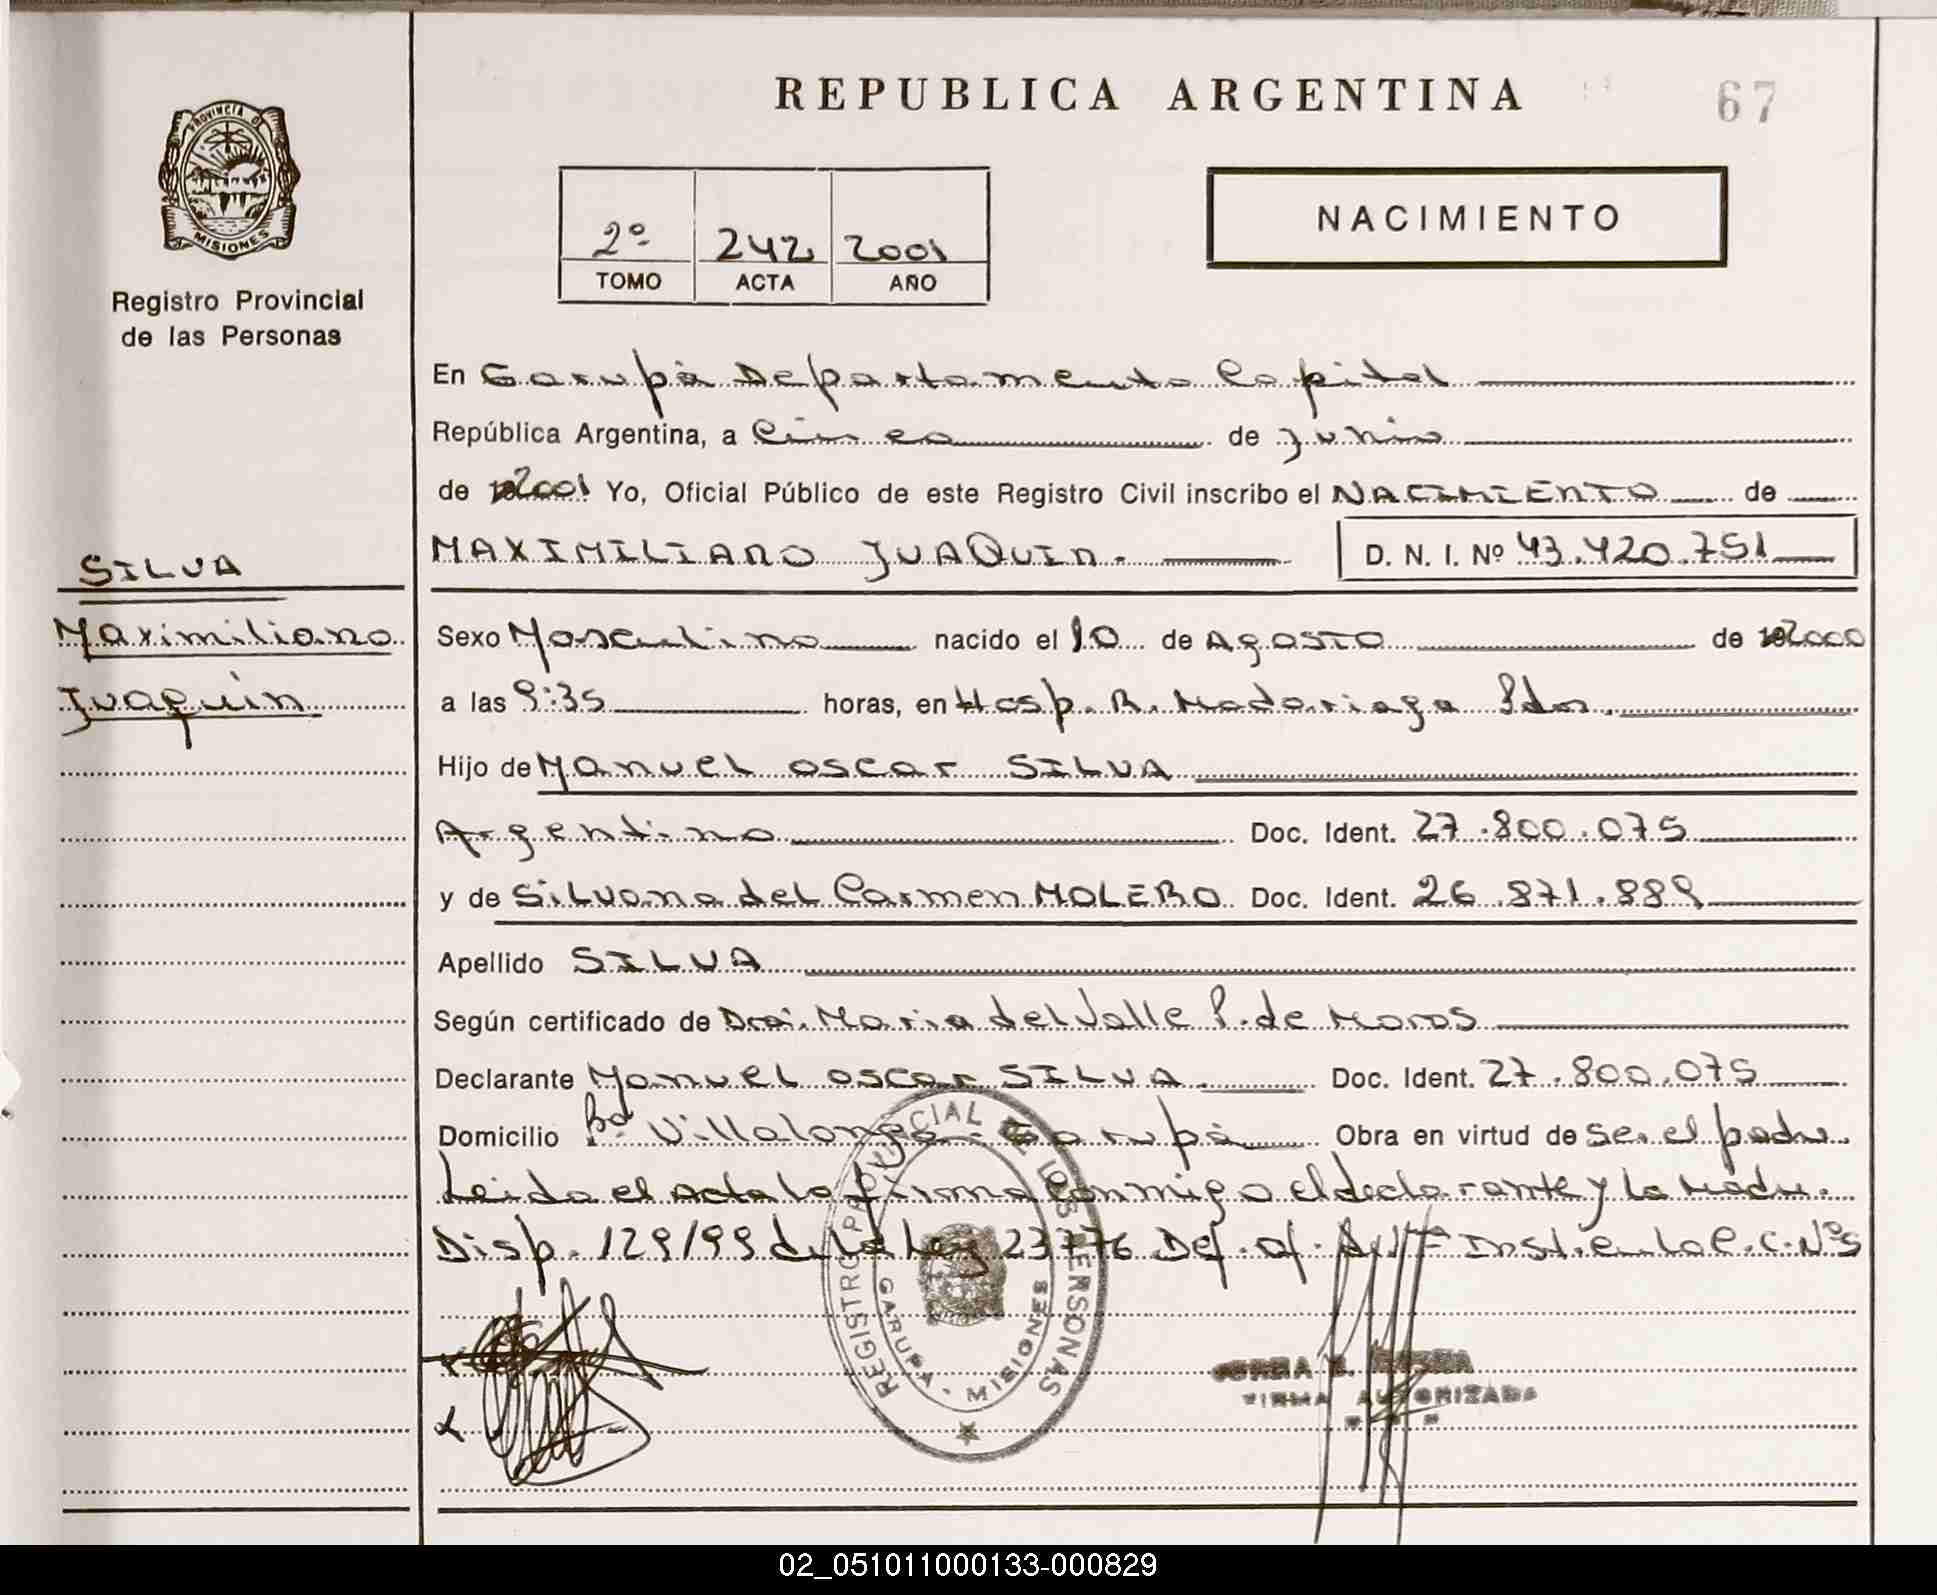 REPUBLICA ARGENTINA
67
PROVINCIA DE
MISIONES
Registro Provincial
de las Personas
2º 242 2001
TOMO ACTA AÑO
NACIMIENTO
En Garupá Departamento Capital
República Argentina, a Cinco de Junio
de 2001 Yo, Oficial Público de este Registro Civil inscribo el NACIMIENTO de
MAXIMILIANO JUAQUIN. D. N. I. Nº 43.420.751
SILVA
Maximiliano
Juaquin
Sexo Masculino nacido el 10 de Agosto de 2000
a las 9:35 horas, en Hosp. R. Madariaga Pdas.
Hijo de Manuel oscar SILVA
Argentino Doc. Ident. 27.800.075
y de Silvana del Carmen MOLERO Doc. Ident. 26.871.889
Apellido SILVA
Según certificado de Dra. Maria del Valle P. de Moros
Declarante Manuel oscar SILVA. Doc. Ident. 27.800.075
Domicilio Bº Villalonga - Garupá Obra en virtud de ser el padre
Leida el acta la firma conmigo el declarante y la madre.
Disp. 129/99 de la Ley 23776 Def. of.
REGISTRO PROVINCIAL DE LAS PERSONAS
GARUPA - MISIONES
FIRMA AUTORIZADA
02_051011000133-000829